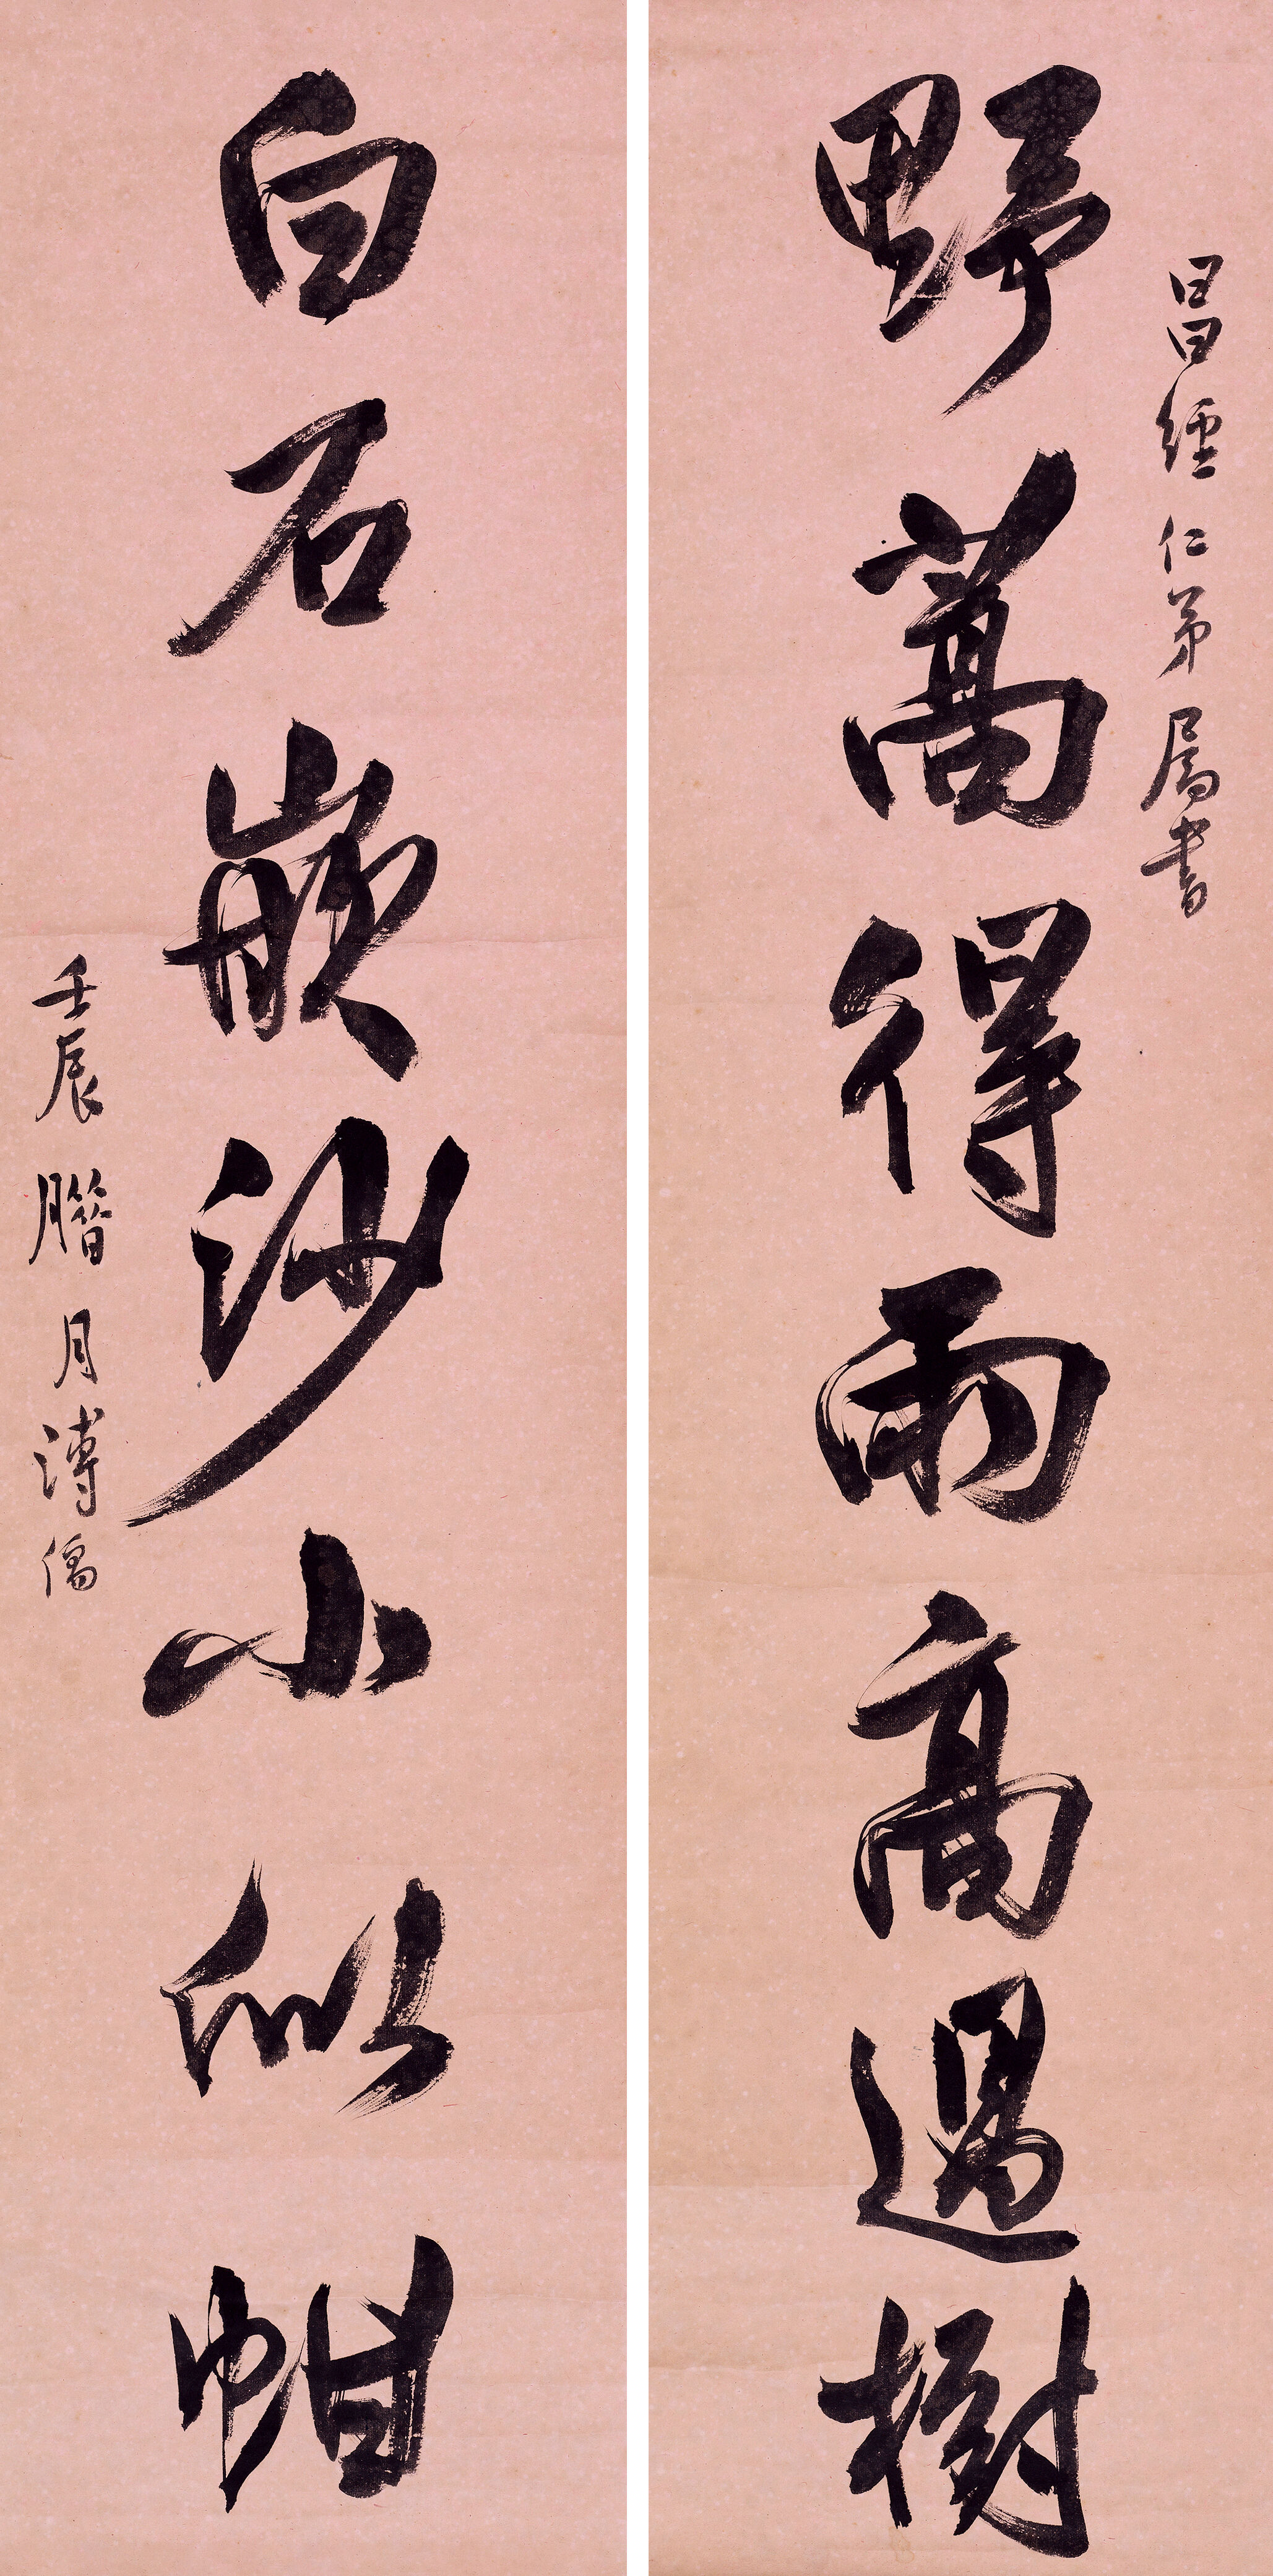 野蒿得雨高過樹
昌經仁弟屬書
白石嵌沙小似蚶
壬辰臘月溥儒